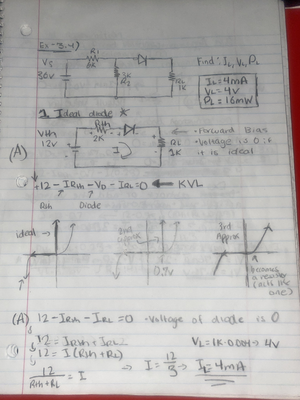 Ex-3.4)
R1
6K
Vs
36V
3K
R2
RL
1K
Find: IL, VL, PL
IL = 4mA
VL = 4V
PL = 16mW
1. Ideal diode *
Rth
2K
Vth
12V
I
RL
1K
← - Forward Bias
- Voltage is 0 if
it is ideal
(A)
+12 - IRth - VD - IRL = 0 ← KVL
Rth
Diode
ideal →
2nd approx
0.7V
3rd Approx
becomes
a resistor
(acts like
one)
(A) 12 - IRth - IRL = 0 • Voltage of diode is 0
12 = IRth + IRL
12 = I (Rth + RL)
12/Rth + RL = I
⇒ I = 12/3 ⇒ IL = 4mA
VL = 1K · 0.004 → 4V